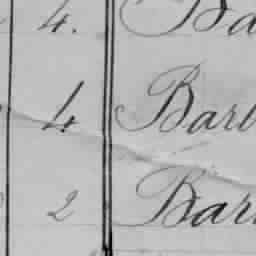 4. Ba
4 Barb
2 Bar